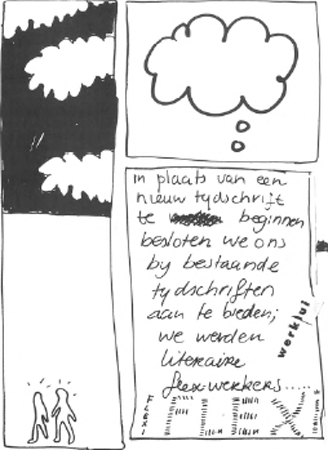 in plaats van een
nieuw tydschrift
te beginnen
besloten we ons
by bestaande
tydschriften
aan te bieden;
we werden
literaire
flexi-werkers.....
werklui
FLEXI
FLEX